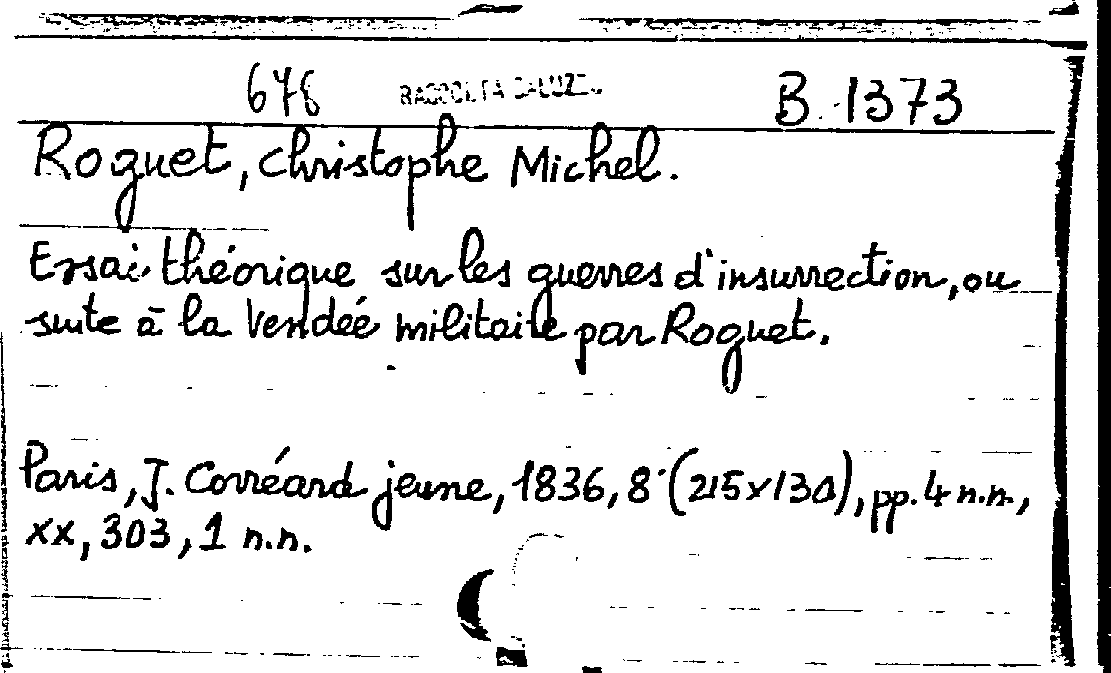 678 RACCOLTA SALUZZO B. 1373
Roguet, Christophe Michel.
Essai théorique sur les guerres d'insurrection, ou
suite à la Vendée militaire par Roguet.
Paris, J. Corréard jeune, 1836, 8° (215x130), pp. 4 n.n.,
xx, 303, 1 n.n.